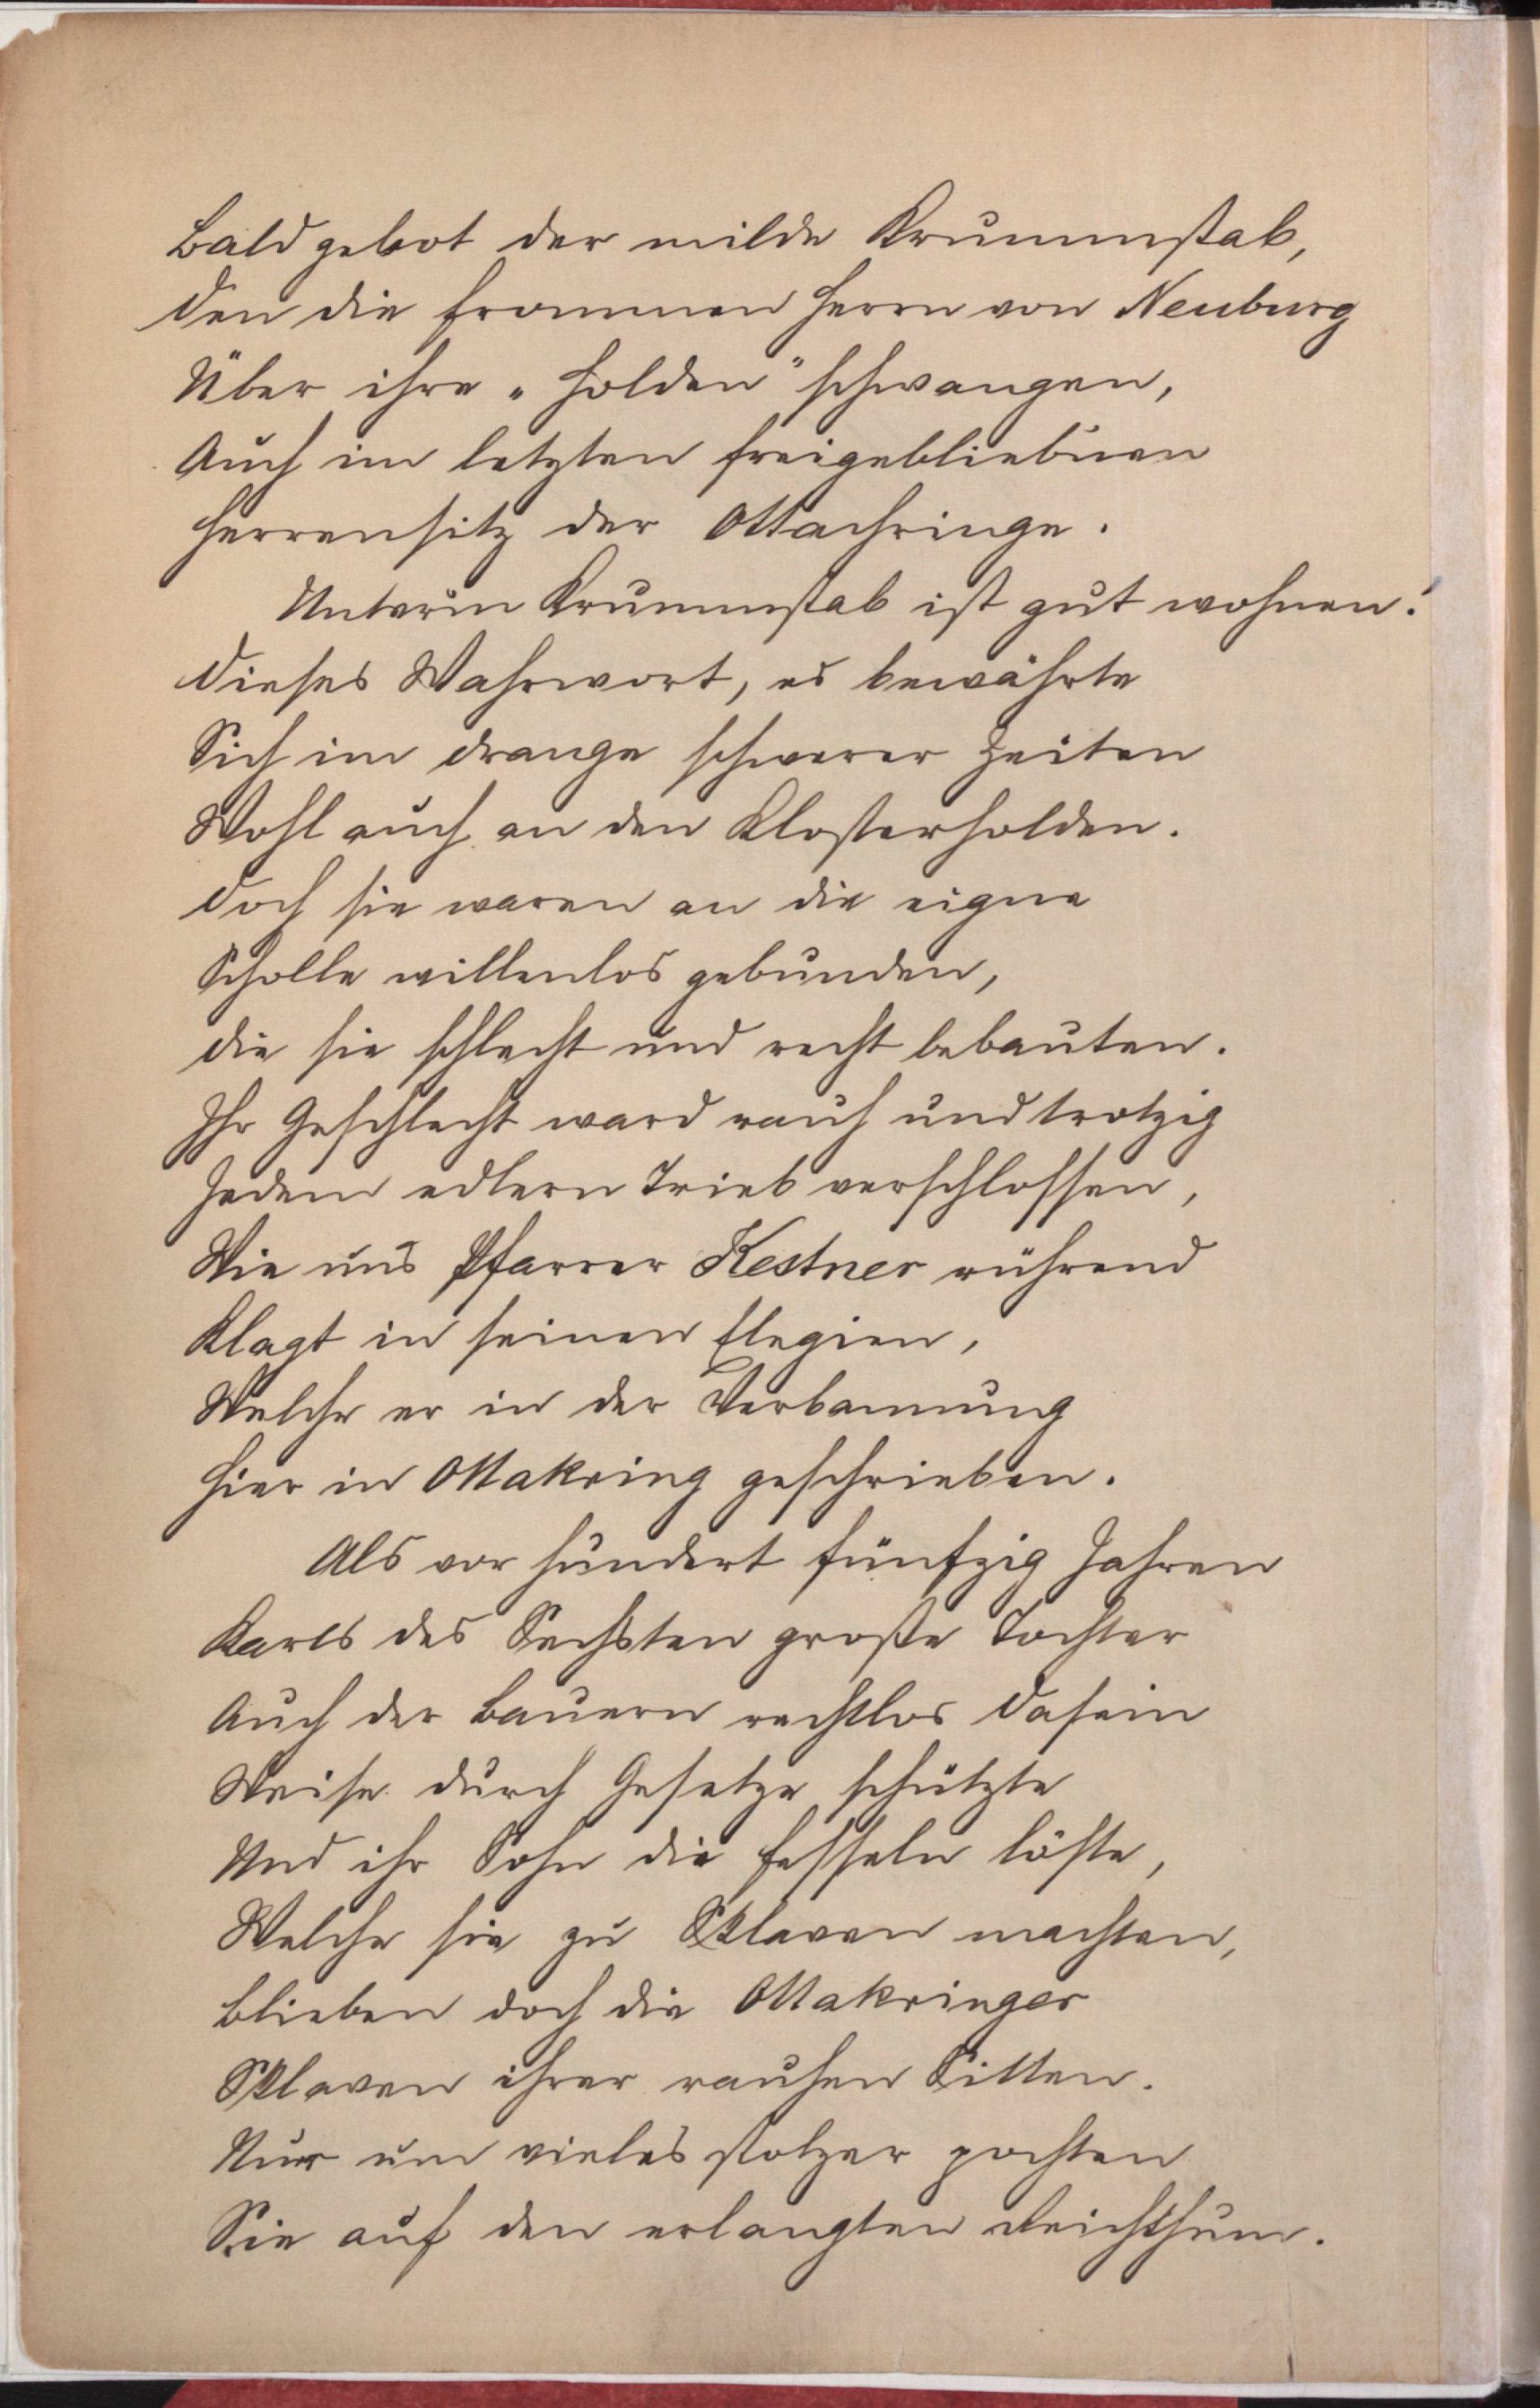 Bald gebot der milde Krummstab,
Den die frommen Herrn von Neuburg
Über ihre „Holden" schwangen,
Auch im letzten freigeblieb'nen
Herrensitz der Ottachringe.
Unter'm Krummstab ist gut wohnen!
Dieses Wahrwort, es bewährte
Sich im Drange schwerer Zeiten
Wohl auch an den Klosterholden.
Doch sie waren an die eigne
Scholle willenlos gebunden,
Die sie schlecht und recht bebauten.
Ihr Geschlecht ward rauh und trotzig
Jedem edlern Trieb verschlossen,
Wie uns Pfarrer Kestner rührend
Klagt in seinen Elegien,
Welche er in der Verbannung
Hier in Ottakring geschrieben.
Als vor hundert fünfzig Jahren
Karls des Sechsten große Tochter
Auch der Bauern rechtlos Dasein
Weise durch Gesetze schützte
Und ihr Sohn die Fesseln löste,
Welche sie zu Sklaven machten,
Blieben doch die Ottakringer
Sklaven ihrer rauhen Sitten.
Nur um vieles stolzer pochten
Sie auf den erlangten Reichthum.